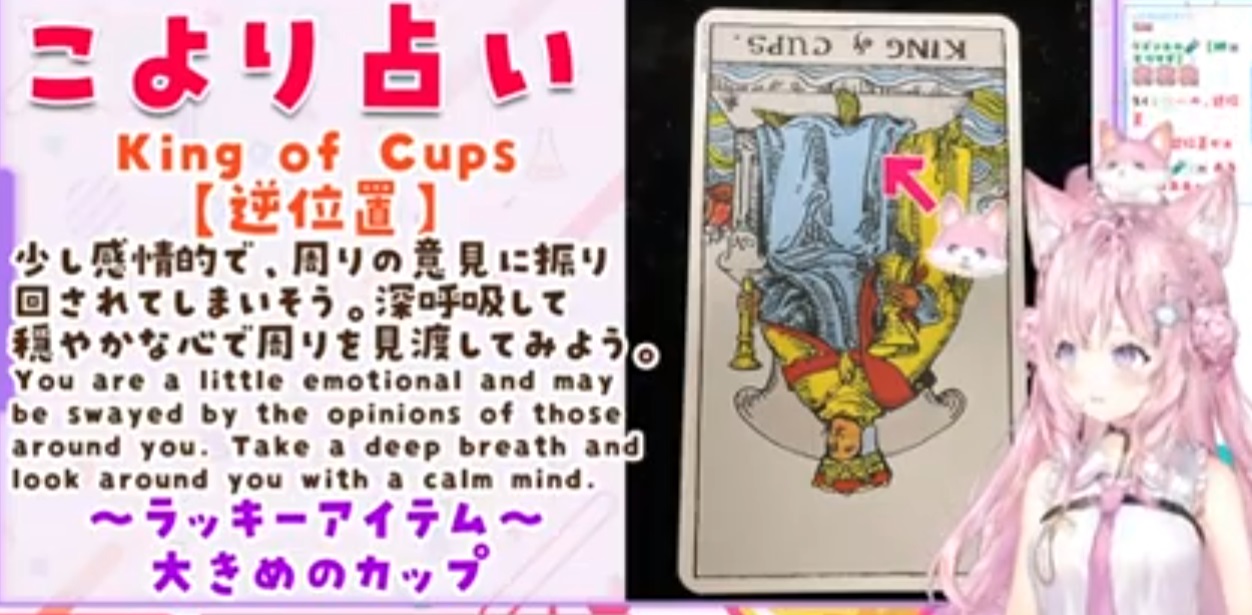 こより占い
King of Cups
【逆位置】
少し感情的で、周りの意見に振り
回されてしまいそう。深呼吸して
穏やかな心で周りを見渡してみよう。
You are a little emotional and may
be swayed by the opinions of those
around you. Take a deep breath and
look around you with a calm mind.
～ラッキーアイテム～
大きめのカップ
KING of CUPS.